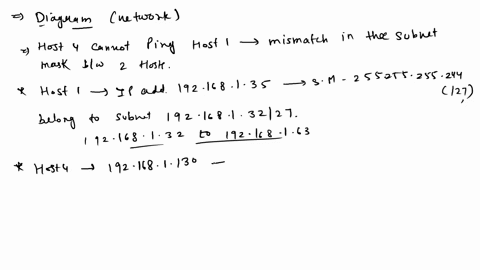 ⇒ Diagram (network)
⇒ Host 4 cannot Ping Host 1 → mismatch in the subnet
mask b/w 2 Host.
* Host 1 → IP add. 192.168.1.35 → S.M - 255.255.255.244
(/27)
belong to subnet 192.168.1.32/27.
192.168.1.32 to 192.168.1.63
* Host 4 → 192.168.1.130 —